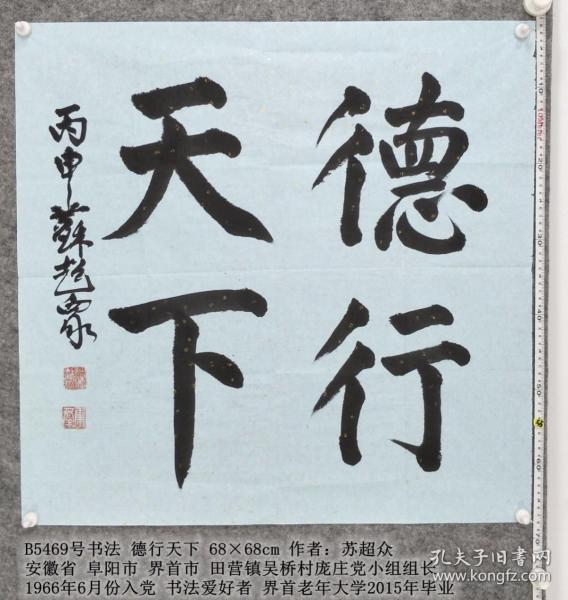 德行
天下
丙申蘇超眾
B5469号书法 德行天下 68×68cm 作者：苏超众
安徽省 阜阳市 界首市 田营镇吴桥村庞庄党小组组长
1966年6月份入党 书法爱好者 界首老年大学2015年毕业
孔夫子旧书网
www.kongfz.com